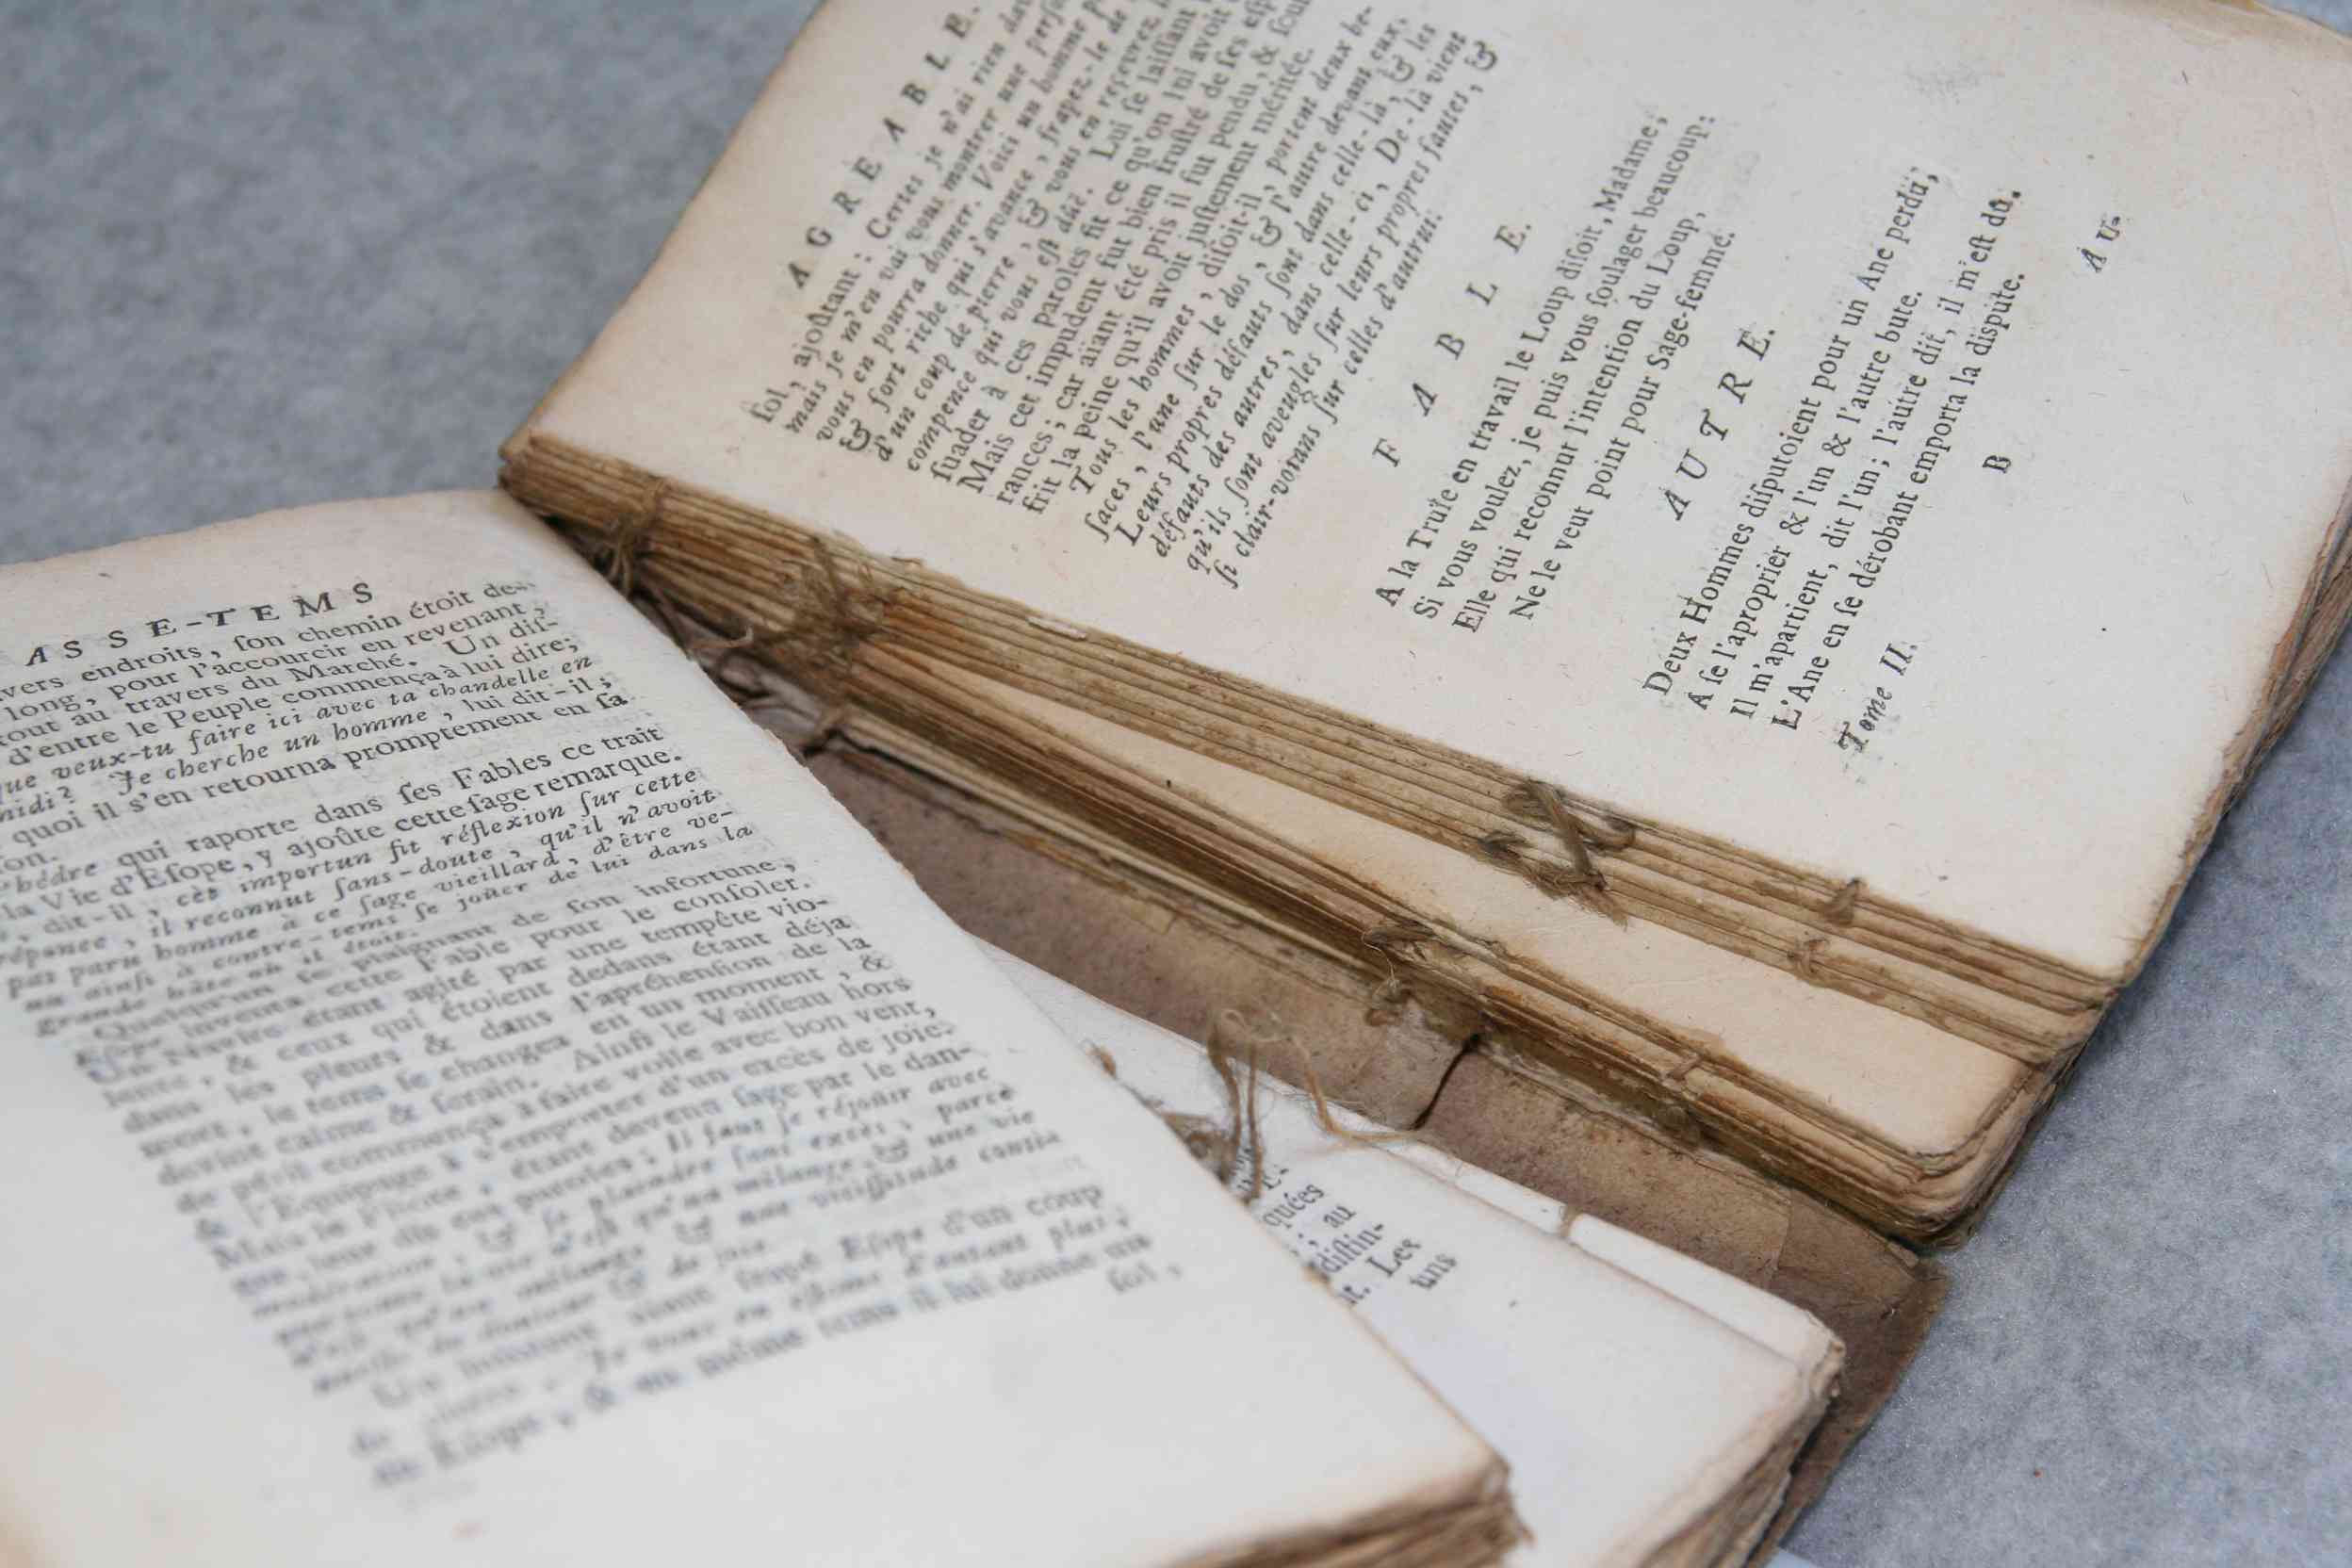 ASSE-TEMS
vers endroits, ſon chemin étoit de-
long, pour l'accourcir en revenant,
tout au travers du Marché. Un diſ-
d'entre le Peuple commença à lui dire;
que veux-tu faire ici avec ta chandelle en
midi? Je cherche un homme, lui dit-il;
quoi il s'en retourna promptement en ſa
ſon.
hédre qui raporte dans ſes Fables ce trait
la Vie d'Eſope, y ajoûte cette ſage remarque.
, dit-il, cèt importun fit réflexion ſur cette
réponce, il reconnut ſans-doute, qu'il n'avoit
pas paru homme à ce ſage vieillard, d'être ve-
nu ainſi à contre-tems ſe joüer de lui dans la
grande hâte où il étoit.
Quelqu'un ſe plaignant de ſon infortune,
Eſope inventa cette Fable pour le conſoler.
Un Navire étant agité par une tempête vio-
lente, & ceux qui étoient dedans étant déja
dans les pleurs & dans l'apréhenſion de la
mort, le tems ſe changea en un moment, &
devint calme & ſerain. Ainſi le Vaiſſeau hors
de péril commença à faire voile avec bon vent,
& l'Equipage à s'emporter d'un excès de joie.
Mais le Pilote, étant devenu ſage par le dan-
ger, leur dit ces paroles: Il faut ſe réjouir avec
modération, & ſe plaindre ſans excès, parce
que toute la vie n'eſt qu'un mélange, & une vie
de joie.
Un homme aiant frapé Eſope d'un coup
de pierre, Je vous en eſtime d'autant plus,
dit Eſope, & en même tems il lui donna un
ſol,
AGREABLE.
ſol, ajoûtant: Certes je n'ai rien da
mais je m'en vai vous montrer une perſo
vous en pourra donner. Voici un homme p
& fort riche qui s'avance, frapez-le de
d'un coup de pierre, & vous en reçevrez
compence qui vous eſt dûë. Lui ſe laiſſant
ſuader à ces paroles fit ce qu'on lui avoit
Mais cet impudent fut bien fruſtré de ſes eſp
rances; car aïant été pris il fut pendu, & ſou
frit la peine qu'il avoit juſtement méritée.
Tous les hommes, diſoit-il, portent deux be-
ſaces, l'une ſur le dos, & l'autre devant eux.
Leurs propres défauts ſont dans celle-là, & les
défauts des autres, dans celle-ci, De-là vient
qu'ils ſont aveugles ſur leurs propres fautes, &
ſi clair-voians ſur celles d'autrui.
FABLE.
A la Truïe en travail le Loup diſoit, Madame;
Si vous voulez, je puis vous ſoulager beaucoup:
Elle qui reconnut l'intention du Loup,
Ne le veut point pour Sage-femme.
AUTRE.
Deux Hommes diſputoient pour un Ane perdu,
A ſe l'aproprier & l'un & l'autre bute.
Il m'apartient, dit l'un; l'autre dit, il m'eſt dû.
L'Ane en ſe dérobant emporta la diſpute.
Tome II.
B
AU-
quées
, au
diſtin-
it. Les
uns